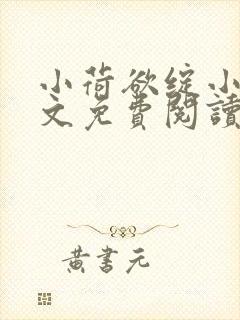 小荷欲绽小
文免費閱讀
黃書元